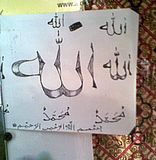 الله
الله الله
الله
الله
محمد محمد
بسم الله الرحمن الرحيم